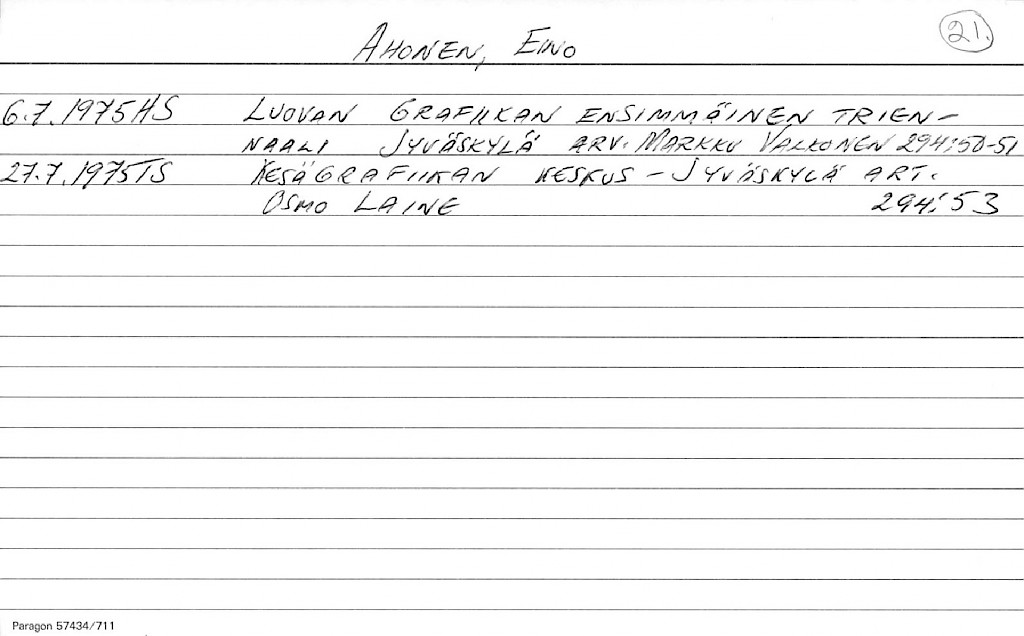 21.
AHONEN, EINO
6.7.1975 HS LUOVAN GRAFIIKAN ENSIMMÄINEN TRIEN-
NAALI JYVÄSKYLÄ ARV. MARKKU VALKONEN 294:50-51
27.7.1975 TS KESÄGRAFIIKAN KESKUS - JYVÄSKYLÄ ART.
OSMO LAINE 294:53
Paragon 57434/711